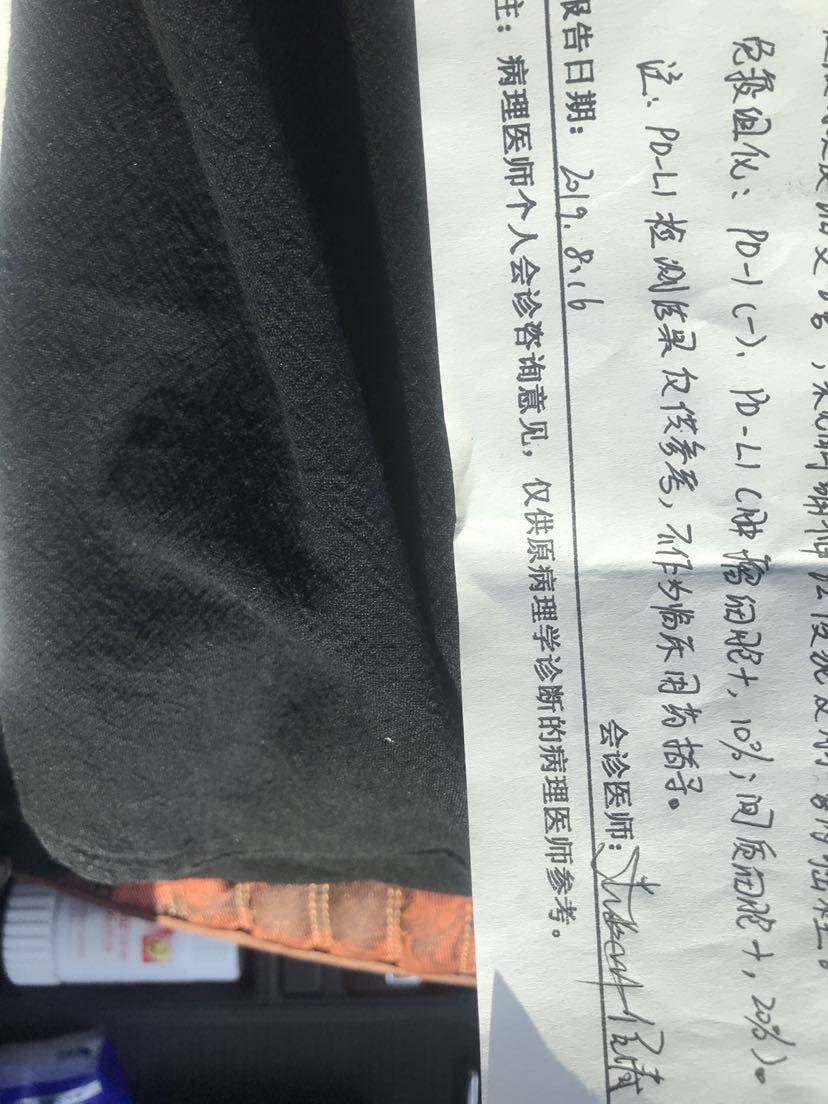 免疫组化：PD-1(-)、PD-L1(肿瘤细胞+，10%；间质细胞+，20%)。
注：PD-L1检测结果仅供参考，不作为临床用药指导。
会诊医师：
报告日期：2019.8.16
注：病理医师个人会诊咨询意见，仅供原病理学诊断的病理医师参考。